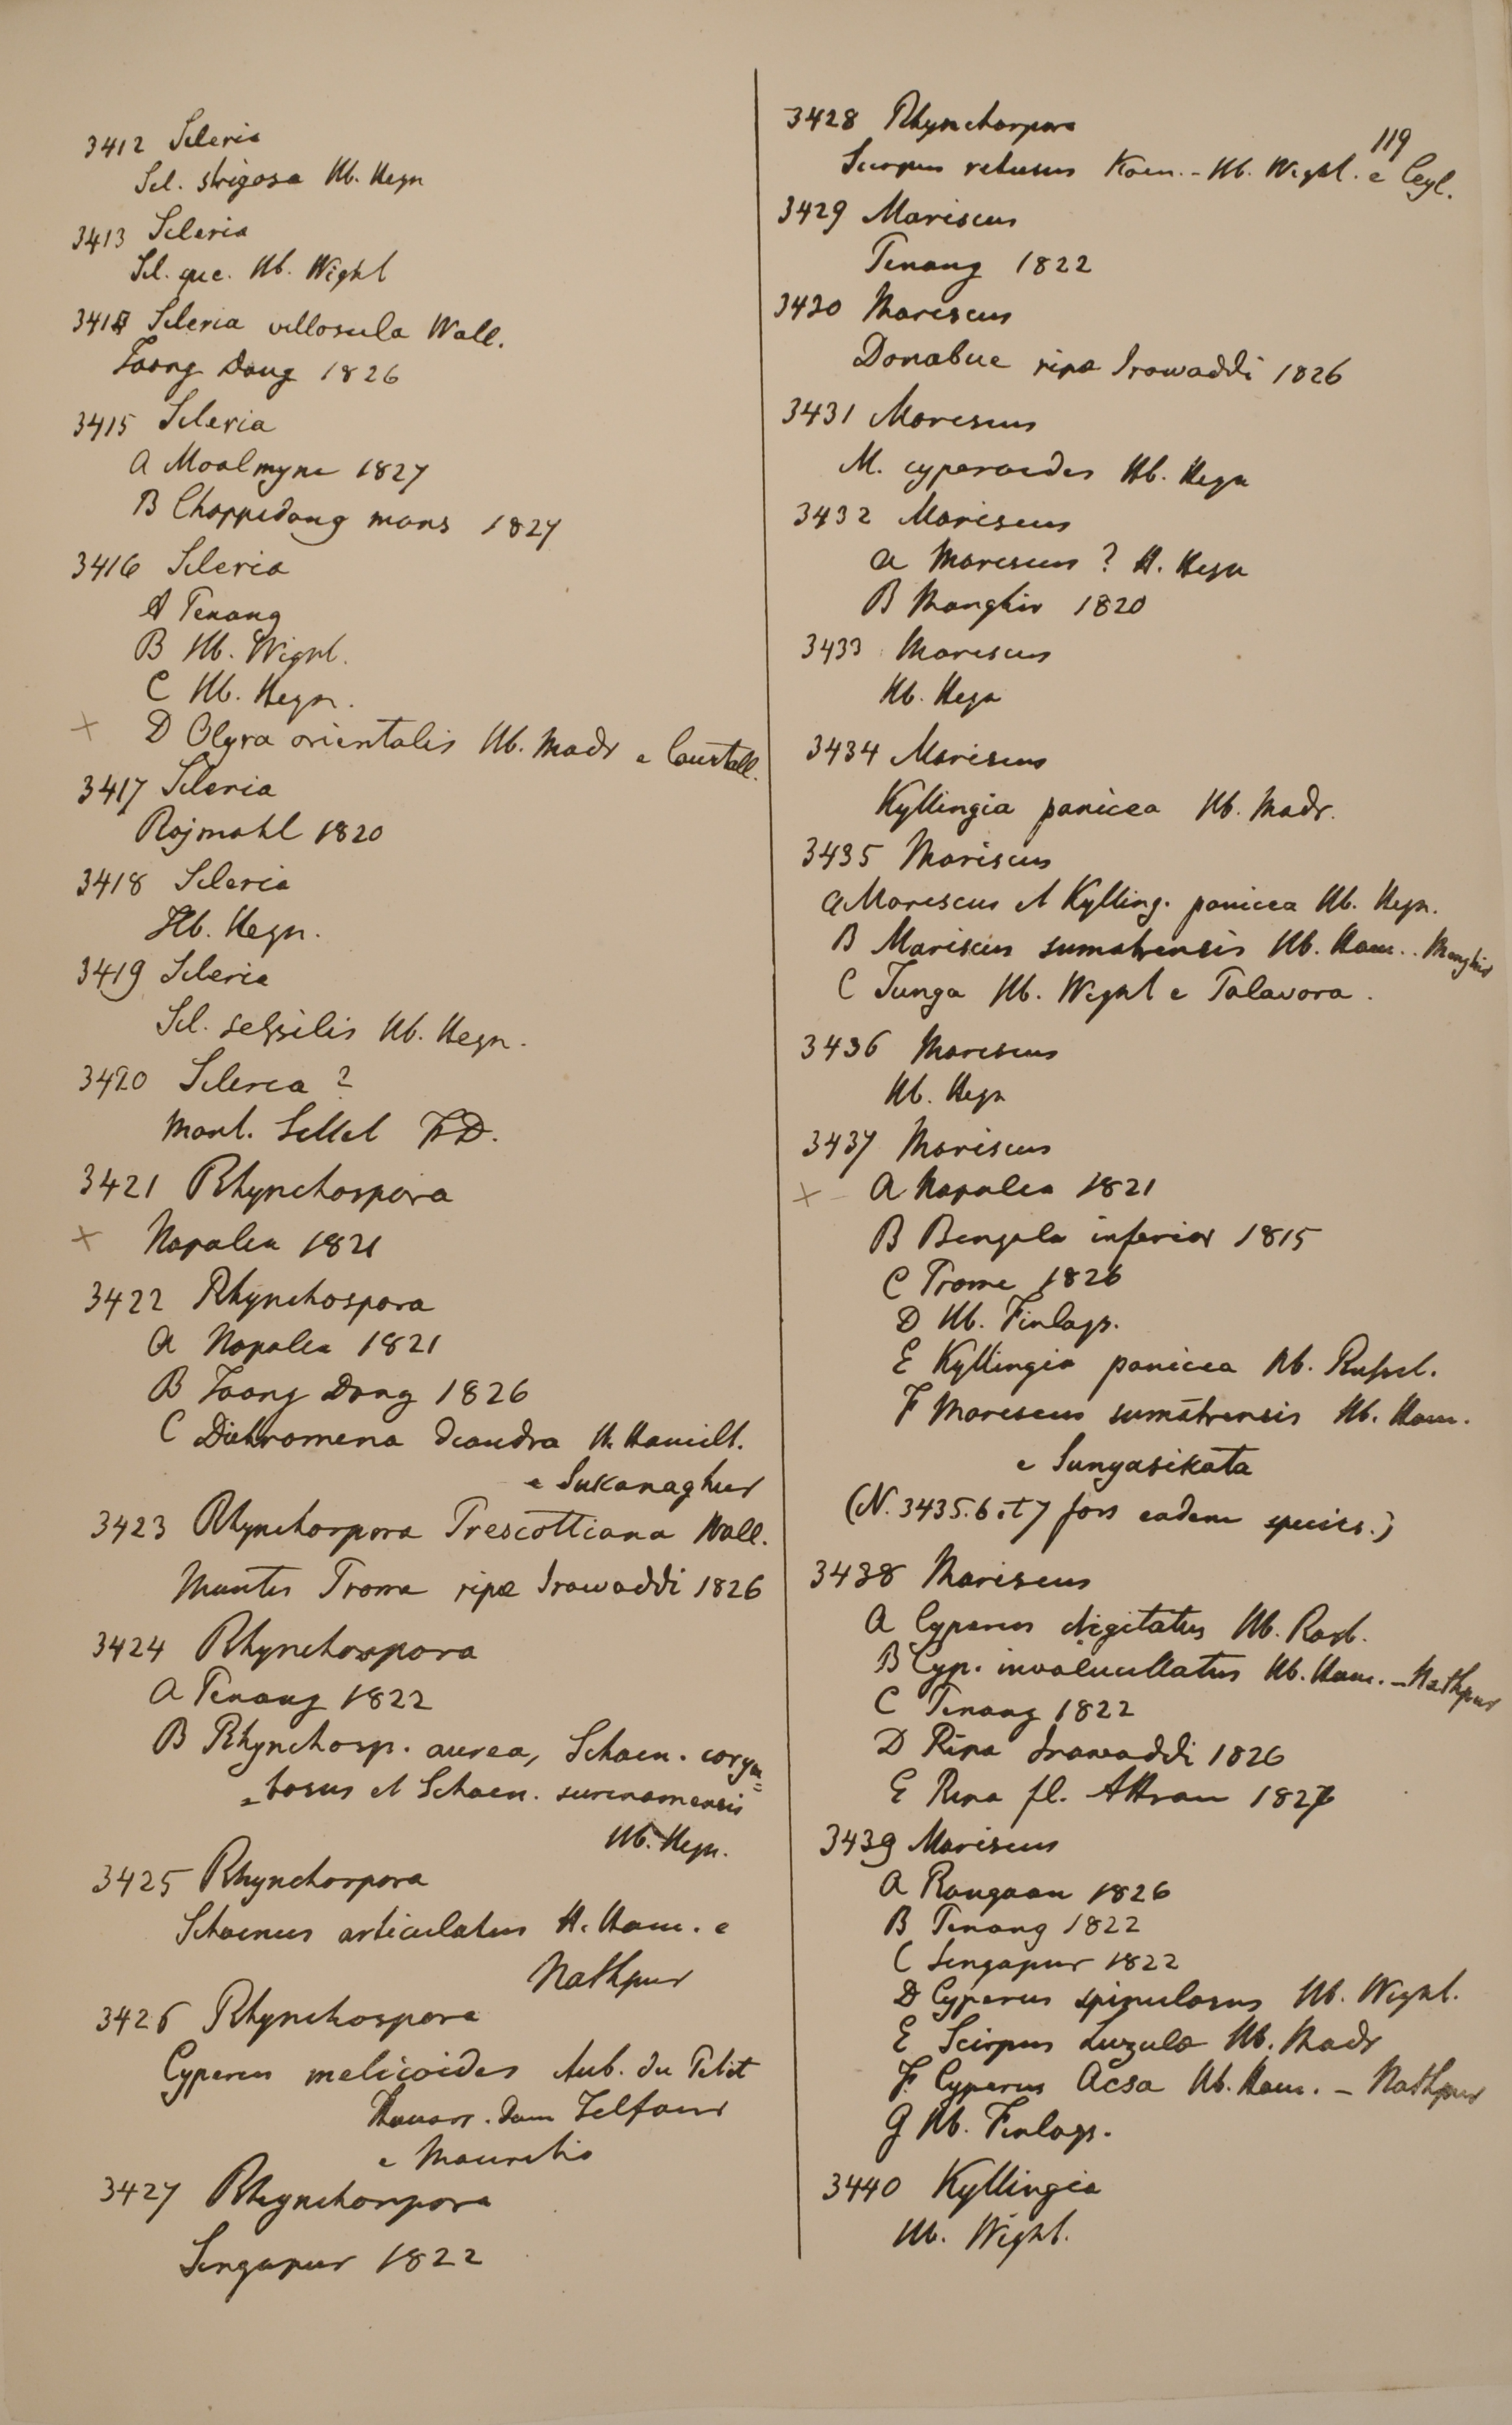 3412 Scleria
Scl. strigosa Hb. Heyn
3413 Scleria
Scl. quc. Hb. Wight
3414 Scleria villosula Wall.
Taong Dong 1826
3415 Scleria
A Moalmyne 1827
B Chappedong mons 1827
3416 Scleria
A Penang
B Hb. Wight.
C Hb. Heyn.
D Olyra orientalis Hb. Madr e Courtall.
3417 Scleria
Rajmahl 1820
3418 Scleria
Hb. Heyn.
3419 Scleria
Scl. sessilis Hb. Heyn.
3420 Scleria ?
Mont. Sillet FD.
3421 Rhynchospora
Napalea 1821
3422 Rhynchospora
A Napalea 1821
B Taong Dong 1826
C Dichromena diandra H. Hamilt.
e Sukanaghur
3423 Rhynchospora Prescottiana Wall.
Montes Prome ripae Irawaddi 1826
3424 Rhynchospora
A Penang 1822
B Rhynchosp. aurea, Schoen. corym=
=bosus et Schoen. surinamensis
Hb. Heyn.
3425 Rhynchospora
Schoenus articulatus H. Ham. e
Nathpur
3426 Rhynchospora
Cyperus melicoides Aub. du Petit
Thouars. Dom Telfair
e Mauritio
3427 Rhynchospora
Singapur 1822
119
3428 Rhynchospora
Scirpus retusus Koen. - Hb. Wight. e Ceyl.
3429 Mariscus
Penang 1822
3430 Mariscus
Donabue ripa Irawaddi 1826
3431 Mariscus
M. cyperoides Hb. Heyn
3432 Mariscus
A Mariscus ? H. Heyn
B Monghir 1820
3433 Mariscus
Hb. Heyn
3434 Mariscus
Kyllingia panicea Hb. Madr.
3435 Mariscus
A Mariscus et Kylling. panicea Hb. Heyn.
B Mariscus sumatrensis Hb. Ham. . Monghir
C Tunga Hb. Wight e Talavora.
3436 Mariscus
Hb. Heyn
3437 Mariscus
A Napalea 1821
B Bengala inferior 1815
C Prome 1826
D Hb. Finlays.
E Kyllingia panicea Hb. Russel.
F Mariscus sumatrensis Hb. Ham.
e Sunyasikata
(N. 3435.6 et 7 fors eadem species.)
3438 Mariscus
A Cyperus digitatus Hb. Roxb.
B Cyp. involucellatus Hb. Ham. - Nathpur
C Penang 1822
D Ripa Irawaddi 1826
E Ripa fl. Attran 1827
3439 Mariscus
A Rangoon 1826
B Penang 1822
C Singapur 1822
D Cyperus spinulosus Hb. Wight.
E Scirpus Luzula Hb. Madr
F. Cyperus Acsa Hb. Ham. - Nathpur
G Hb. Finlays.
3440 Kyllingia
Hb. Wight.